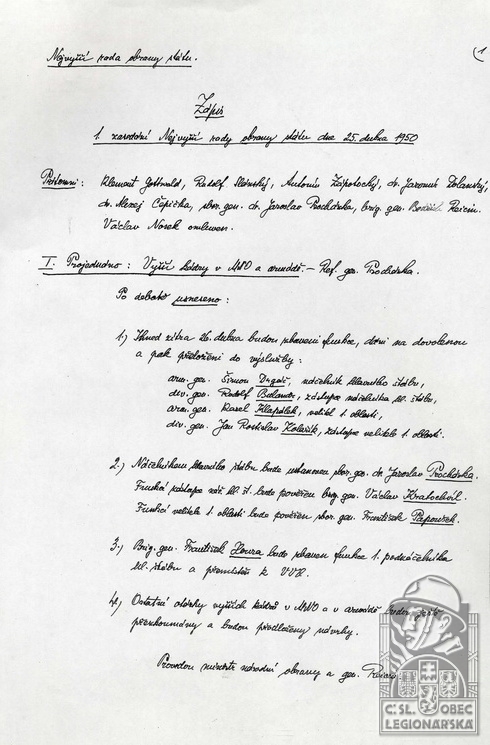 Nejvyšší rada obrany státu.
(1
Zápis
1. zasedání Nejvyšší rady obrany státu dne 25. dubna 1950
Přítomni: Klement Gottwald, Rudolf Slánský, Antonín Zápotocký, dr. Jaromír Dolanský,
dr. Alexej Čepička, sbor. gen. dr. Jaroslav Procházka, brig. gen. Bedřich Reicin.
Václav Nosek omluven.
I. Projednáno: Vyšší kádry v MNO a armádě. – Ref. gen. Procházka.
Po debatě usneseno:
1.) Ihned zítra 26. dubna budou zbaveni funkce, dáni na dovolenou
a pak přeloženi do výslužby:
arm. gen. Šimon Drgač, náčelník hlavního štábu,
div. gen. Rudolf zástupce náčelníka hl. štábu,
arm. gen. Karel Klapálek, velitel 1. oblasti,
div. gen. Jan Rostislav zástupce velitele 1. oblasti.
2.) Náčelníkem hlavního štábu bude ustanoven sbor. gen. dr. Jaroslav Procházka.
Funkcí zástupce náč. hl. št. bude pověřen brig. gen. Václav Kratochvíl.
Funkcí velitele 1. oblasti bude pověřen sbor. gen. František
3.) Brig. gen. František bude zbaven funkce 1. podnáčelníka
hl. štábu a přemístěn k V.V.R.
4.) Ostatní otázky vyšších kádrů v MNO a v armádě budou ještě
přezkoumány a budou předloženy návrhy.
Provedou ministr národní obrany a gen. Reicin.
ČSL. OBEC
LEGIONÁŘSKÁ